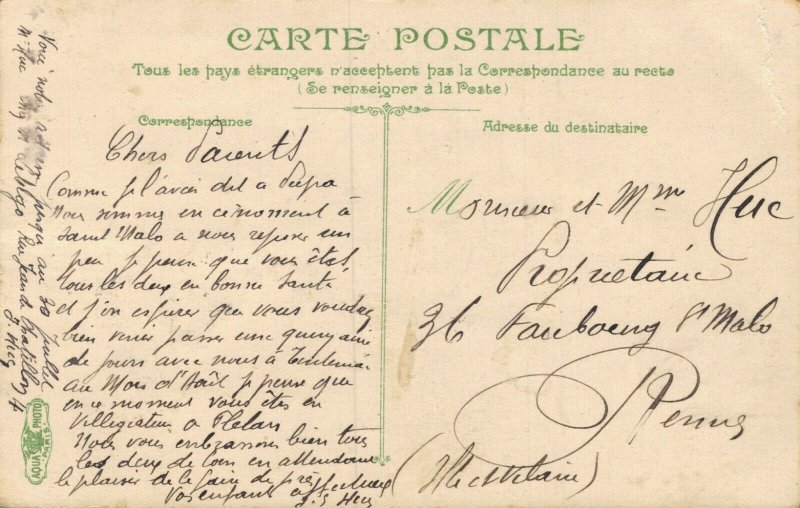 CARTE POSTALE
Tous les pays étrangers n'acceptent pas la Correspondance au recto
(Se renseigner à la Poste)
Correspondance
Adresse du destinataire
Chers Parents
Comme je l'avais dit a Pepa
Nous sommes en ce moment à
Saint Malo a nous reposer un
peu je pense que vous êtes
tous les deux en bonne santé
et j'en espérer que vous voudrez
bien venir passer une quinzaine
de jours avec nous à
au Mois d'Août je pense que
en ce moment vous êtes en
villegiature a Plelan
Nous vous embrassons bien tous
les deux de loin en attendant
le plaisir de le faire de près
Vos enfants affectueux
J. Huc
Voici notre jusqu'au 30 juillet
Mr Huc chez Mr Rue Jean de Chatillon 4
J. Huc
Monsieur et Mme Huc
Propriétaire
36 Faubourg St Malo
Rennes
(Ille et Vilaine)
AQUA PHOTO
PARIS